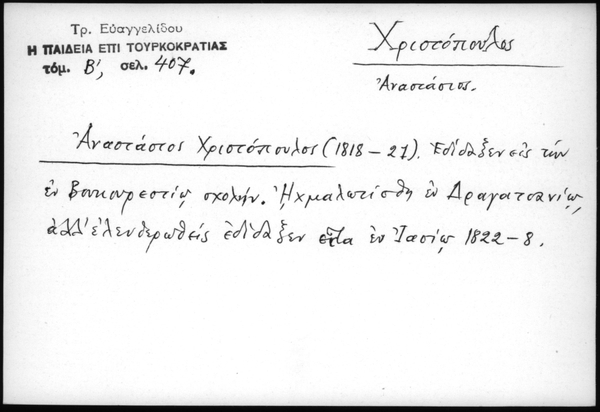 Τρ. Εὐαγγελίδου
Η ΠΑΙΔΕΙΑ ΕΠΙ ΤΟΥΡΚΟΚΡΑΤΙΑΣ
τόμ. Β', σελ. 407.
Χριστόπουλος
Ἀναστάσιος.
Ἀναστάσιος Χριστόπουλος (1818 - 21). Ἐδίδαξεν εἰς τὴν
ἐν Βουκουρεστίῳ σχολήν. Ἠχμαλωτίσθη ἐν Δραγατσανίῳ,
ἀλλ' ἐλευθερωθεὶς ἐδίδαξεν εἶτα ἐν Ἰασίῳ 1822 - 8.